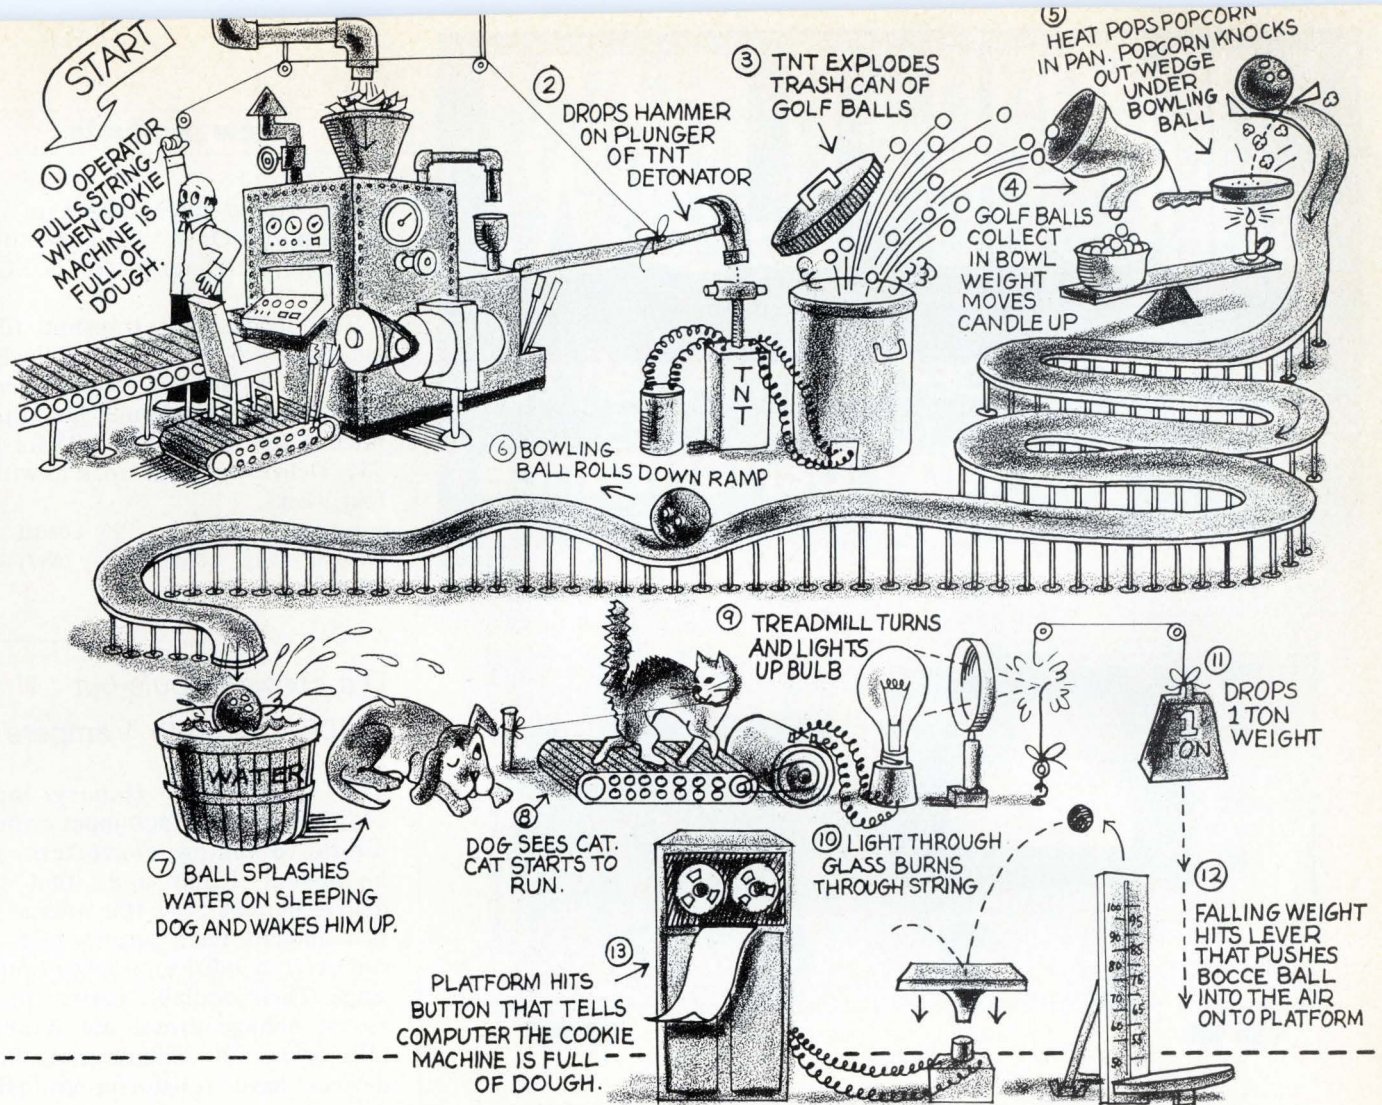 START
① OPERATOR
PULLS STRING
WHEN COOKIE
MACHINE IS
FULL OF
DOUGH.
②
DROPS HAMMER
ON PLUNGER
OF TNT
DETONATOR
③ TNT EXPLODES
TRASH CAN OF
GOLF BALLS
TNT
④
GOLF BALLS
COLLECT
IN BOWL
WEIGHT
MOVES
CANDLE UP
⑤
HEAT POPS POPCORN
IN PAN. POPCORN KNOCKS
OUT WEDGE
UNDER
BOWLING
BALL
⑥ BOWLING
BALL ROLLS DOWN RAMP
WATER
⑦ BALL SPLASHES
WATER ON SLEEPING
DOG AND WAKES HIM UP.
⑧
DOG SEES CAT.
CAT STARTS TO
RUN.
⑨ TREADMILL TURNS
AND LIGHTS
UP BULB
⑩ LIGHT THROUGH
GLASS BURNS
THROUGH STRING
⑪
DROPS
1 TON
WEIGHT
1
TON
⑫
FALLING WEIGHT
HITS LEVER
THAT PUSHES
BOCCE BALL
INTO THE AIR
ONTO PLATFORM
100
95
90
85
80
⑬
PLATFORM HITS
BUTTON THAT TELLS
COMPUTER THE COOKIE
MACHINE IS FULL
OF DOUGH.